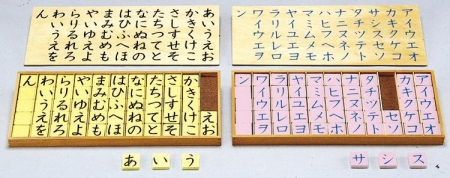 あいうえお
かきくけこ
さしすせそ
たちつてと
なにぬねの
はひふへほ
まみむめも
やいゆえよ
らりるれろ
わいうえを
ん
アイウエオ
カキクケコ
サシスセソ
タチツテト
ナニヌネノ
ハヒフヘホ
マミムメモ
ヤイユエヨ
ラリルレロ
ワイウエヲ
ン
えお
かきくけこ
さしすせそ
たちつてと
なにぬねの
はひふへほ
まみむめも
やいゆえよ
らりるれろ
わいうえを
ん
アイウエオ
カキクケコ
セソ
タチツテト
ナニヌネノ
ハヒフヘホ
マミムメモ
ヤイユエヨ
ラリルレロ
ワイウエヲ
ン
あいう
サシス